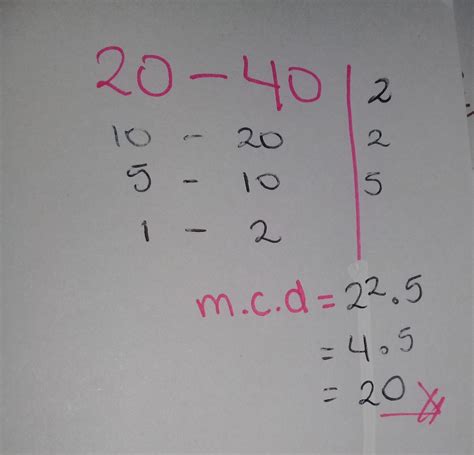 20 - 40 | 2
10 - 20 | 2
5 - 10 | 5
1 - 2 |
m.c.d = 2².5
= 4.5
= 20